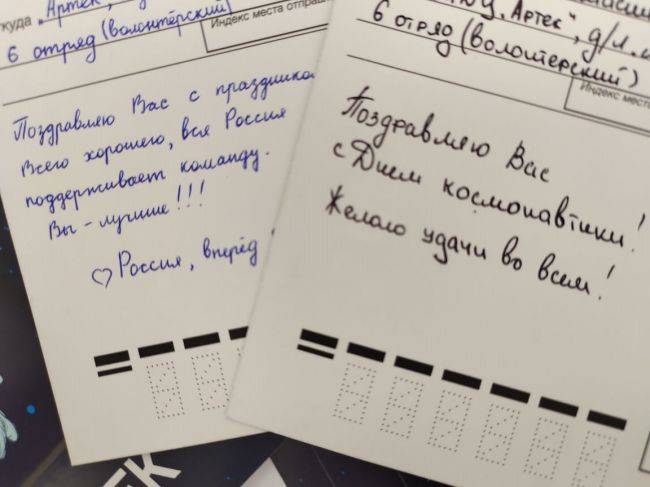 куда „Артек",
6 отряд (волонтёрский)
Индекс места отправ
Поздравляю Вас с праздником
Всего хорошего, вся Россия
поддерживает команду.
Вы - лучшие!!!
♡ Россия, вперёд
Артек", д/л.
6 отряд (волонтерский)
Индекс места
Поздравляю Вас
с Днем космонавтики!
Желаю удачи во всем!